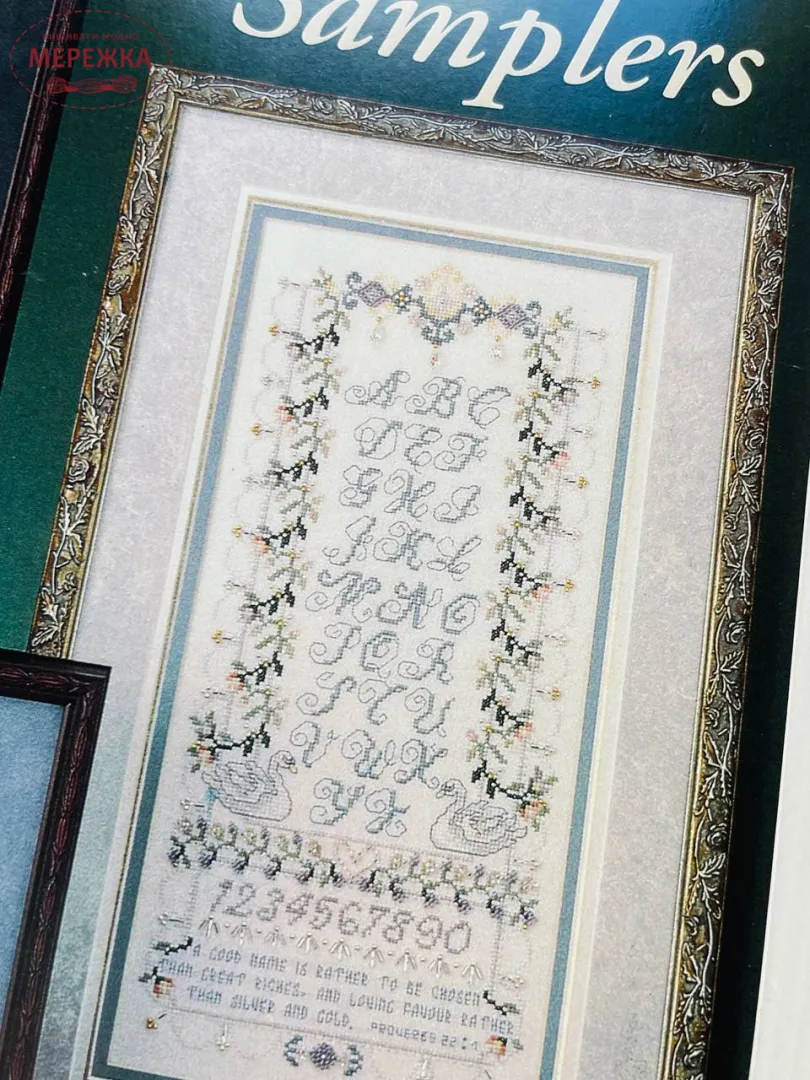 Samplers
ВИШИВАТИ МОДНО
МЕРЕЖКА
A B C
D E F
G H I
J K L
M N O
P Q R
S T U
V W X
Y Z
1234567890
A GOOD NAME IS RATHER TO BE CHOSEN
THAN GREAT RICHES, AND LOVING FAVOUR RATHER
THAN SILVER AND GOLD. PROVERBS 22:1